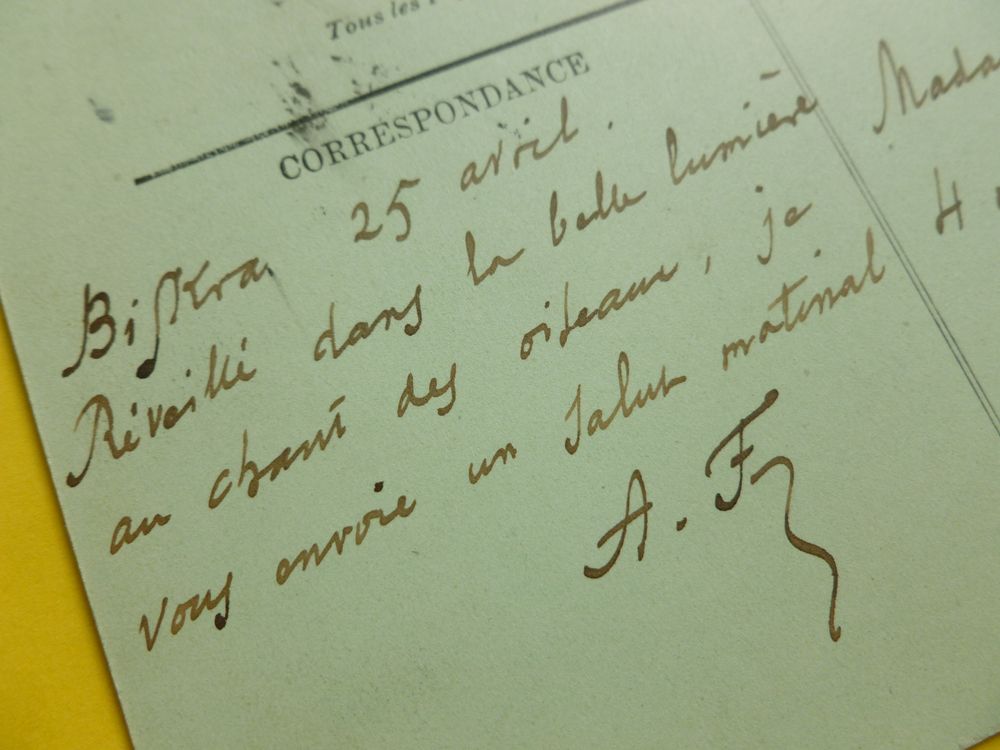 Tous les
CORRESPONDANCE
Biskra 25 avril.
Réveillé dans la belle lumière
au chant des oiseaux, je
vous envoie un salut matinal
A. F
Mada
4